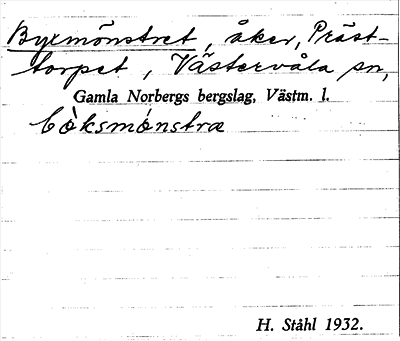 Byxmönstret, åker, Präst-
torpet, Västervåla sn,
Gamla Norbergs bergslag, Västm. l.
bòksmónstræ
H. Ståhl 1932.